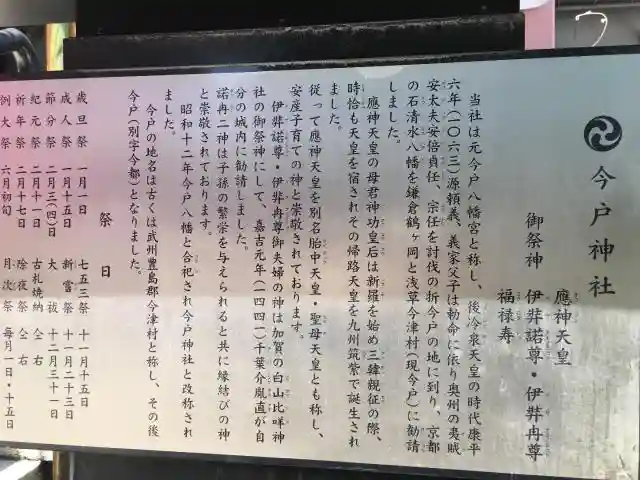 今戸神社
御祭神
應神天皇
伊弉諾尊・伊弉冉尊
福禄寿
当社は元今戸八幡宮と称し、後冷泉天皇の時代康平
六年(一〇六三)源頼義、義家父子は勅命に依り奥州の夷賊
安太夫安倍貞任、宗任を討伐の折今戸の地に到り、京都
の石清水八幡を鎌倉鶴ヶ岡と浅草今津村(現今戸)に勧請
しました。
應神天皇の母君神功皇后は新羅を始め三韓親征の際、
時恰も天皇を宿されその帰路天皇を九州筑紫で誕生され
ました。
従って應神天皇を別名胎中天皇・聖母天皇とも称し、
安産子育ての神と崇敬されております。
伊弉諾尊・伊弉冉尊御夫婦の神は加賀の白山比咩神
社の御祭神にして、嘉吉元年(一四四一)千葉介胤直が自
分の城内に勧請しました。
諾冉二神は子孫の繁栄を与えられると共に縁結びの神
と崇敬されております。
昭和十二年今戸八幡と合祀され今戸神社と改称され
ました。
今戸の地名は古くは武州豊島郡今津村と称し、その後
今戸(別字今都)となりました。
祭日
歳旦祭 一月一日
成人祭 一月十五日
節分祭 二月三(四)日
紀元祭 二月十一日
祈年祭 二月十七日
例大祭 六月初旬
七五三祭 十一月十五日
新嘗祭 十一月二十三日
大祓 十二月三十一日
古札焼納 仝右
除夜祭 仝右
月次祭 毎月一日・十五日